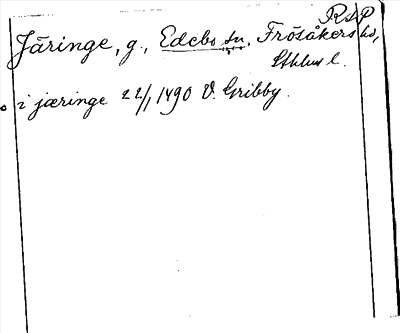 RSP
Järinge, g., Edebo sn, Frösåkers hd,
Sthlms l.
i jæringe 22/1 1490 V. Gribby.